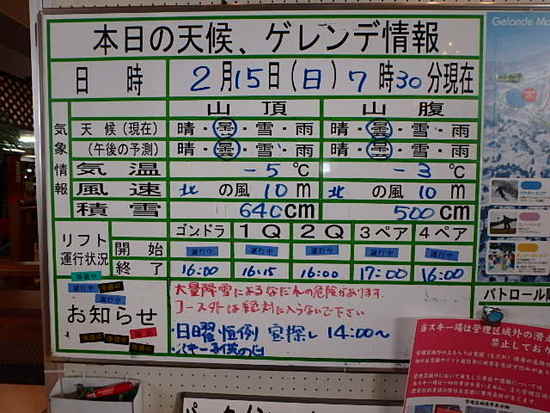 本日の天候、ゲレンデ情報
日 時 2月15日(日)7時30分現在
気象情報 山頂 山腹
天候(現在) 晴・曇・雪・雨 晴・曇・雪・雨
(午後の予測) 晴・曇・雪・雨 晴・曇・雪・雨
気温 -5℃ -3℃
風速 北の風10m 北の風10m
積雪 640cm 500cm
リフト運行状況 ゴンドラ 1Q 2Q 3ペア 4ペア
開始 運行中 運行中 運行中 運行中 運行中
終了 16:00 16:15 16:00 17:00 16:00
お知らせ
大量降雪によるなだれの危険があります。
コース外は絶対に入らないで下さい
・日曜恒例 宝探し 14:00〜
Gelande
パトロール
当スキー場は管理区域外の
禁止してお